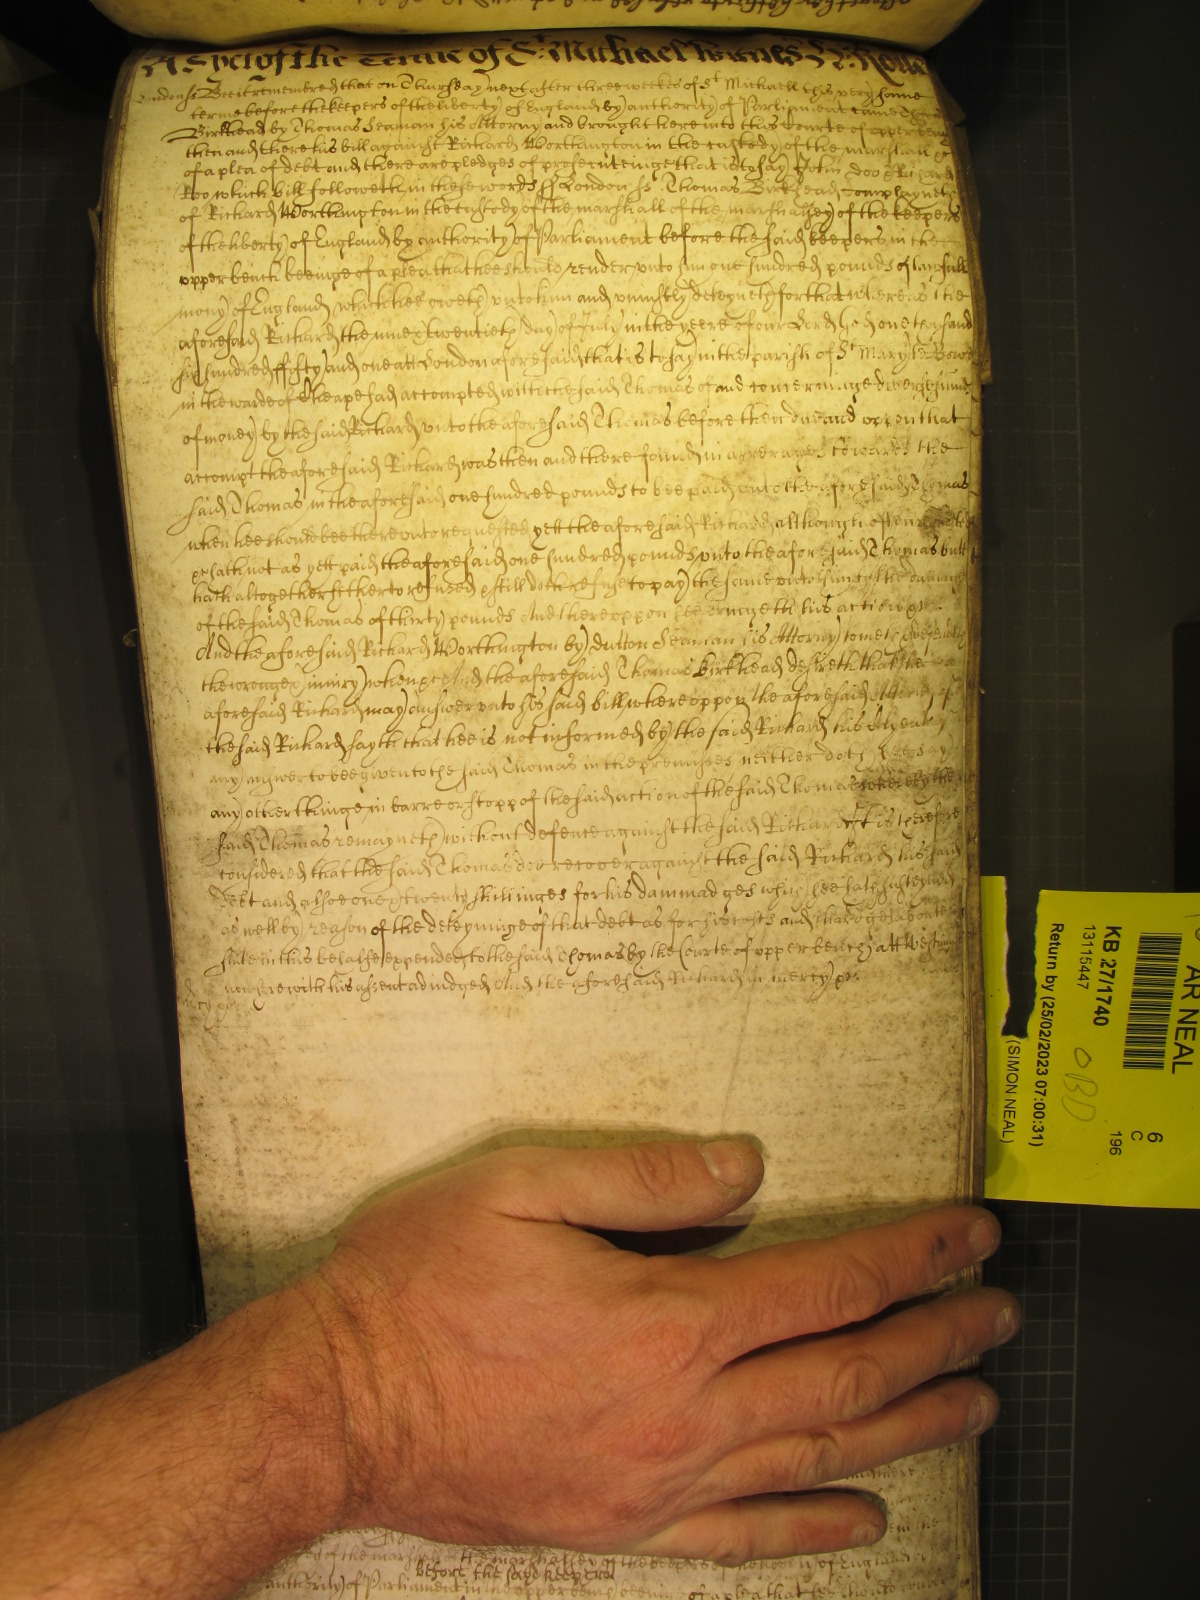 As yet of the Terme of St Michael Wittnes H: Rolle
London ss Bee it remembred that on Thursday next after three weekes of St Michaell this very same
terme before the keepers of the liberty of England by authority of Parliament came Thomas
Birkhead by Thomas Seaman his Attorny and brought here into this Courte of upper bench
then and there his bill against Richard Worthington in the custody of the marshall &c
of a plea of debt and there are pledges of prosecuteinge that is to say John Doo & Richard
Roo which bill followeth in these words ss London ss Thomas Birkhead complayneth
of Richard Worthington in the custody of the marshall of the marshalsey of the keepers
of the liberty of England by authority of Parliament before the said keepers in the
upper bench beeinge of a plea that hee should render unto him one hundred pounds of lawfull
mony of England which hee oweth unto him and uniustly deteyneth for that whereas the
aforesaid Richard the nine & twentieth day of July in the yeere of our Lord God one thousand
six hundred fifty and one att London aforesaid that is to say in the parish of St Mary le Bowe
in the warde of Cheape had accompted with the said Thomas of and concerninge divers summes
of money by the said Richard unto the aforesaid Thomas before then due and uppon that
accompt the aforesaid Richard was then and there found in arrerages towards the
said Thomas in the aforesaid one hundred pounds to bee paid unto the aforesaid Thomas
when hee should bee thereunto requested yett the aforesaid Richard although often requested
&c hath not as yett paid the aforesaid one hundred pounds unto the aforesaid Thomas butt
hath altogether hitherto refused & still doth refuse to pay the same unto him to the damage
of the said Thomas of thirty pounds And thereoppon hee bringeth his action &c
And the aforesaid Richard Worthington by Dutton Seaman his Attorny cometh & defendeth
the wronge & iniury when &c And the aforesaid Thomas Birkhead desireth that the
aforesaid Richard may answer unto his said bill whereoppon the aforesaid Attorny of
the said Richard sayth that hee is not informed by the said Richard his Client of
any answer to bee given to the said Thomas in the premisses neither doth hee say
any other thinge in barre or stopp of the said action of the said Thomas whereby the
said Thomas remayneth without defence against the said Richard It is therefore
considered that the said Thomas doe recover against the said Richard his said
debt and alsoe one & twenty shillinges for his dammadges which hee hath susteyned
as well by reason of the deteyninge of that debt as for his costs and charges about
suite in this behalfe expended to the said Thomas by the Courte of upper bench att Westm
now here with his assent adiudged And the aforesaid Richard in mercy &c
mercy
before the sayd keepers
authority of Parliament in the upper bench beeinge of a plea that hee should render
KB 27/1740
13115447
Return by (25/02/2023 07:00:31)
(SIMON NEAL)
AR NEAL
OBD
6
C
196